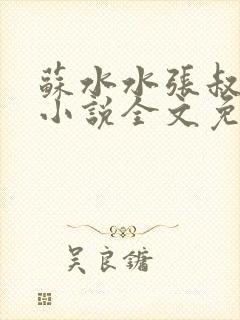 蘇水水張叔
小說全文免
吴良鏞